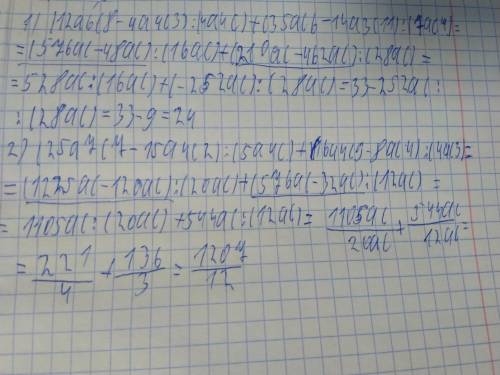 1) (12a6(8-4a4c3):(4a4c)+(35ac6-14a3c11):(7ac4)=
=(576ac-48ac):(16ac)+(210ac-462ac):(28ac)=
=528ac:(16ac)+(-252ac):(28ac)=33-252ac:
:(28ac)=33-9=24
2) (25a7c7-15a4c2):(5a4c)+(16a4c9-8ac4):(4ac3)=
=(1225ac-120ac):(20ac)+(576ac-32ac):(12ac)=
=1105ac:(20ac)+544ac:(12ac)=1105ac/20ac+544ac/12ac=
=221/4+136/3=1207/12